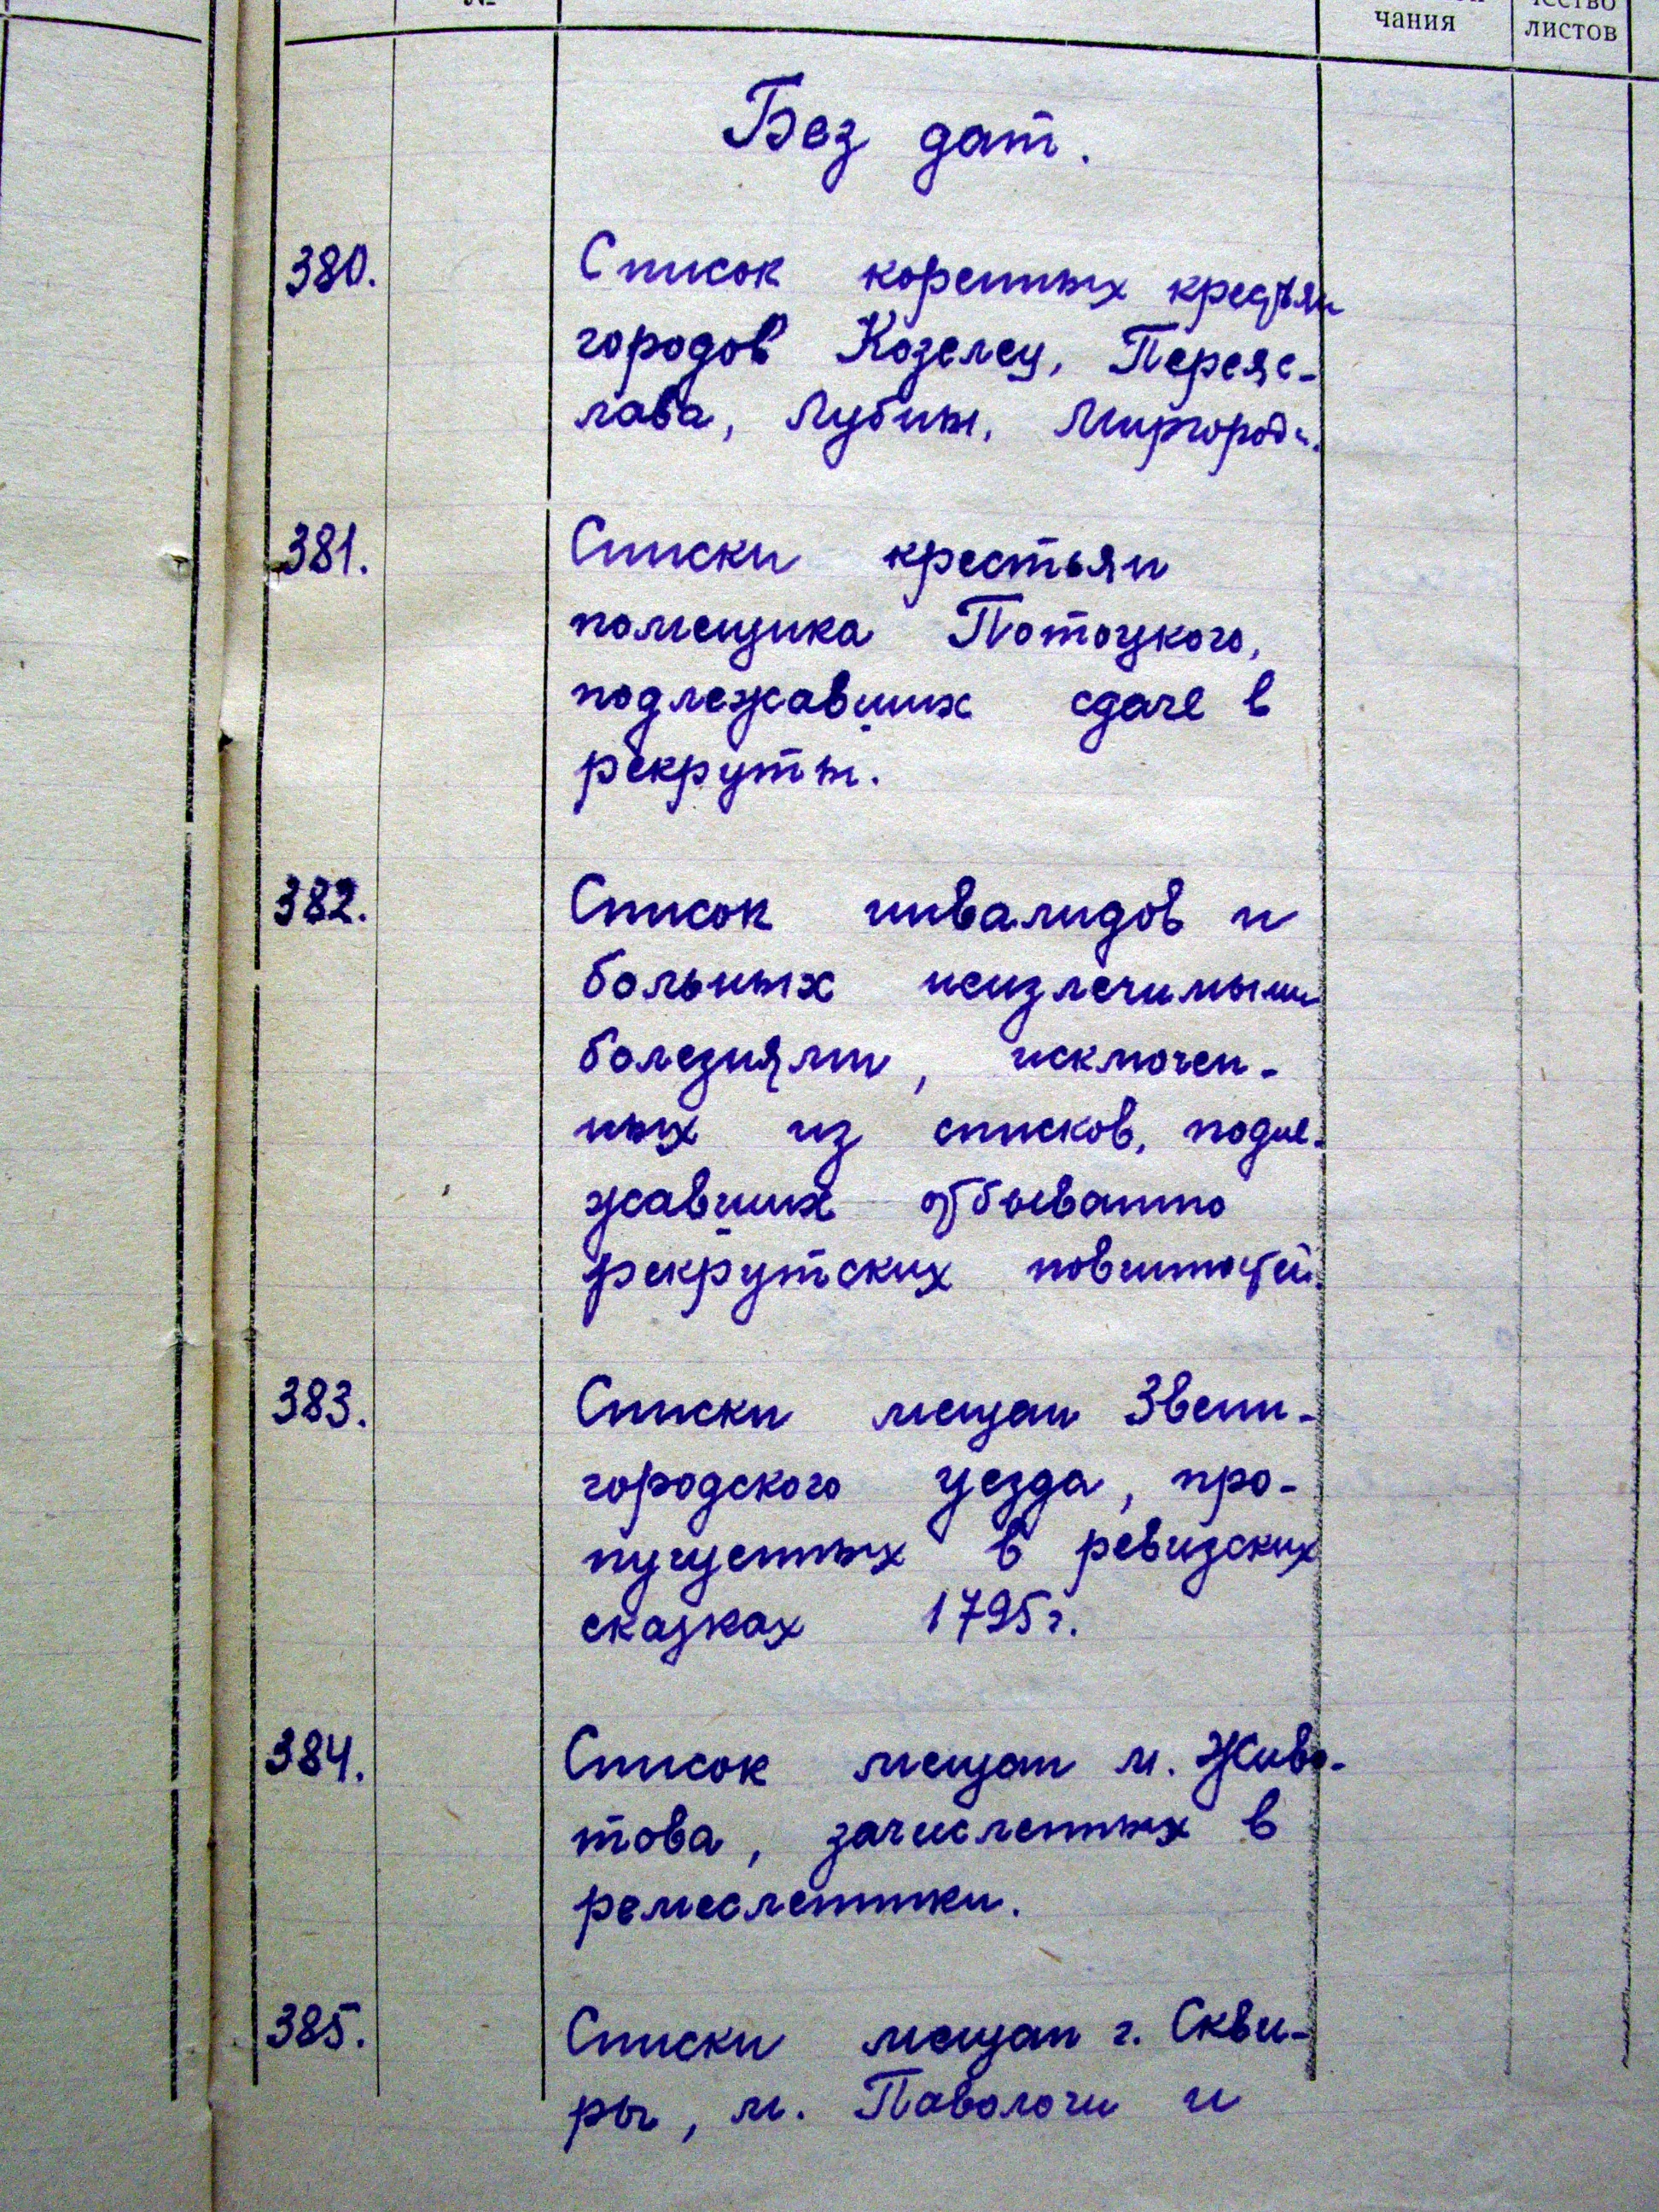 №
чания
чество
листов
Без дат.
380. Список коренных крестьян
городов Козелец, Переяс-
лава, Лубны, Миргород.
381. Списки крестьян
помещика Потоцкого,
подлежавших сдаче в
рекруты.
382. Список инвалидов и
больных неизлечимыми
болезнями, исключен-
ных из списков, подле-
жавших отбыванию
рекрутских повинностей.
383. Списки мещан Звени-
городского уезда, про-
пущенных в ревизских
сказках 1795г.
384. Список мещан м. Живо-
това, зачисленных в
ремесленники.
385. Списки мещан г. Скви-
ры, м. Паволочи и